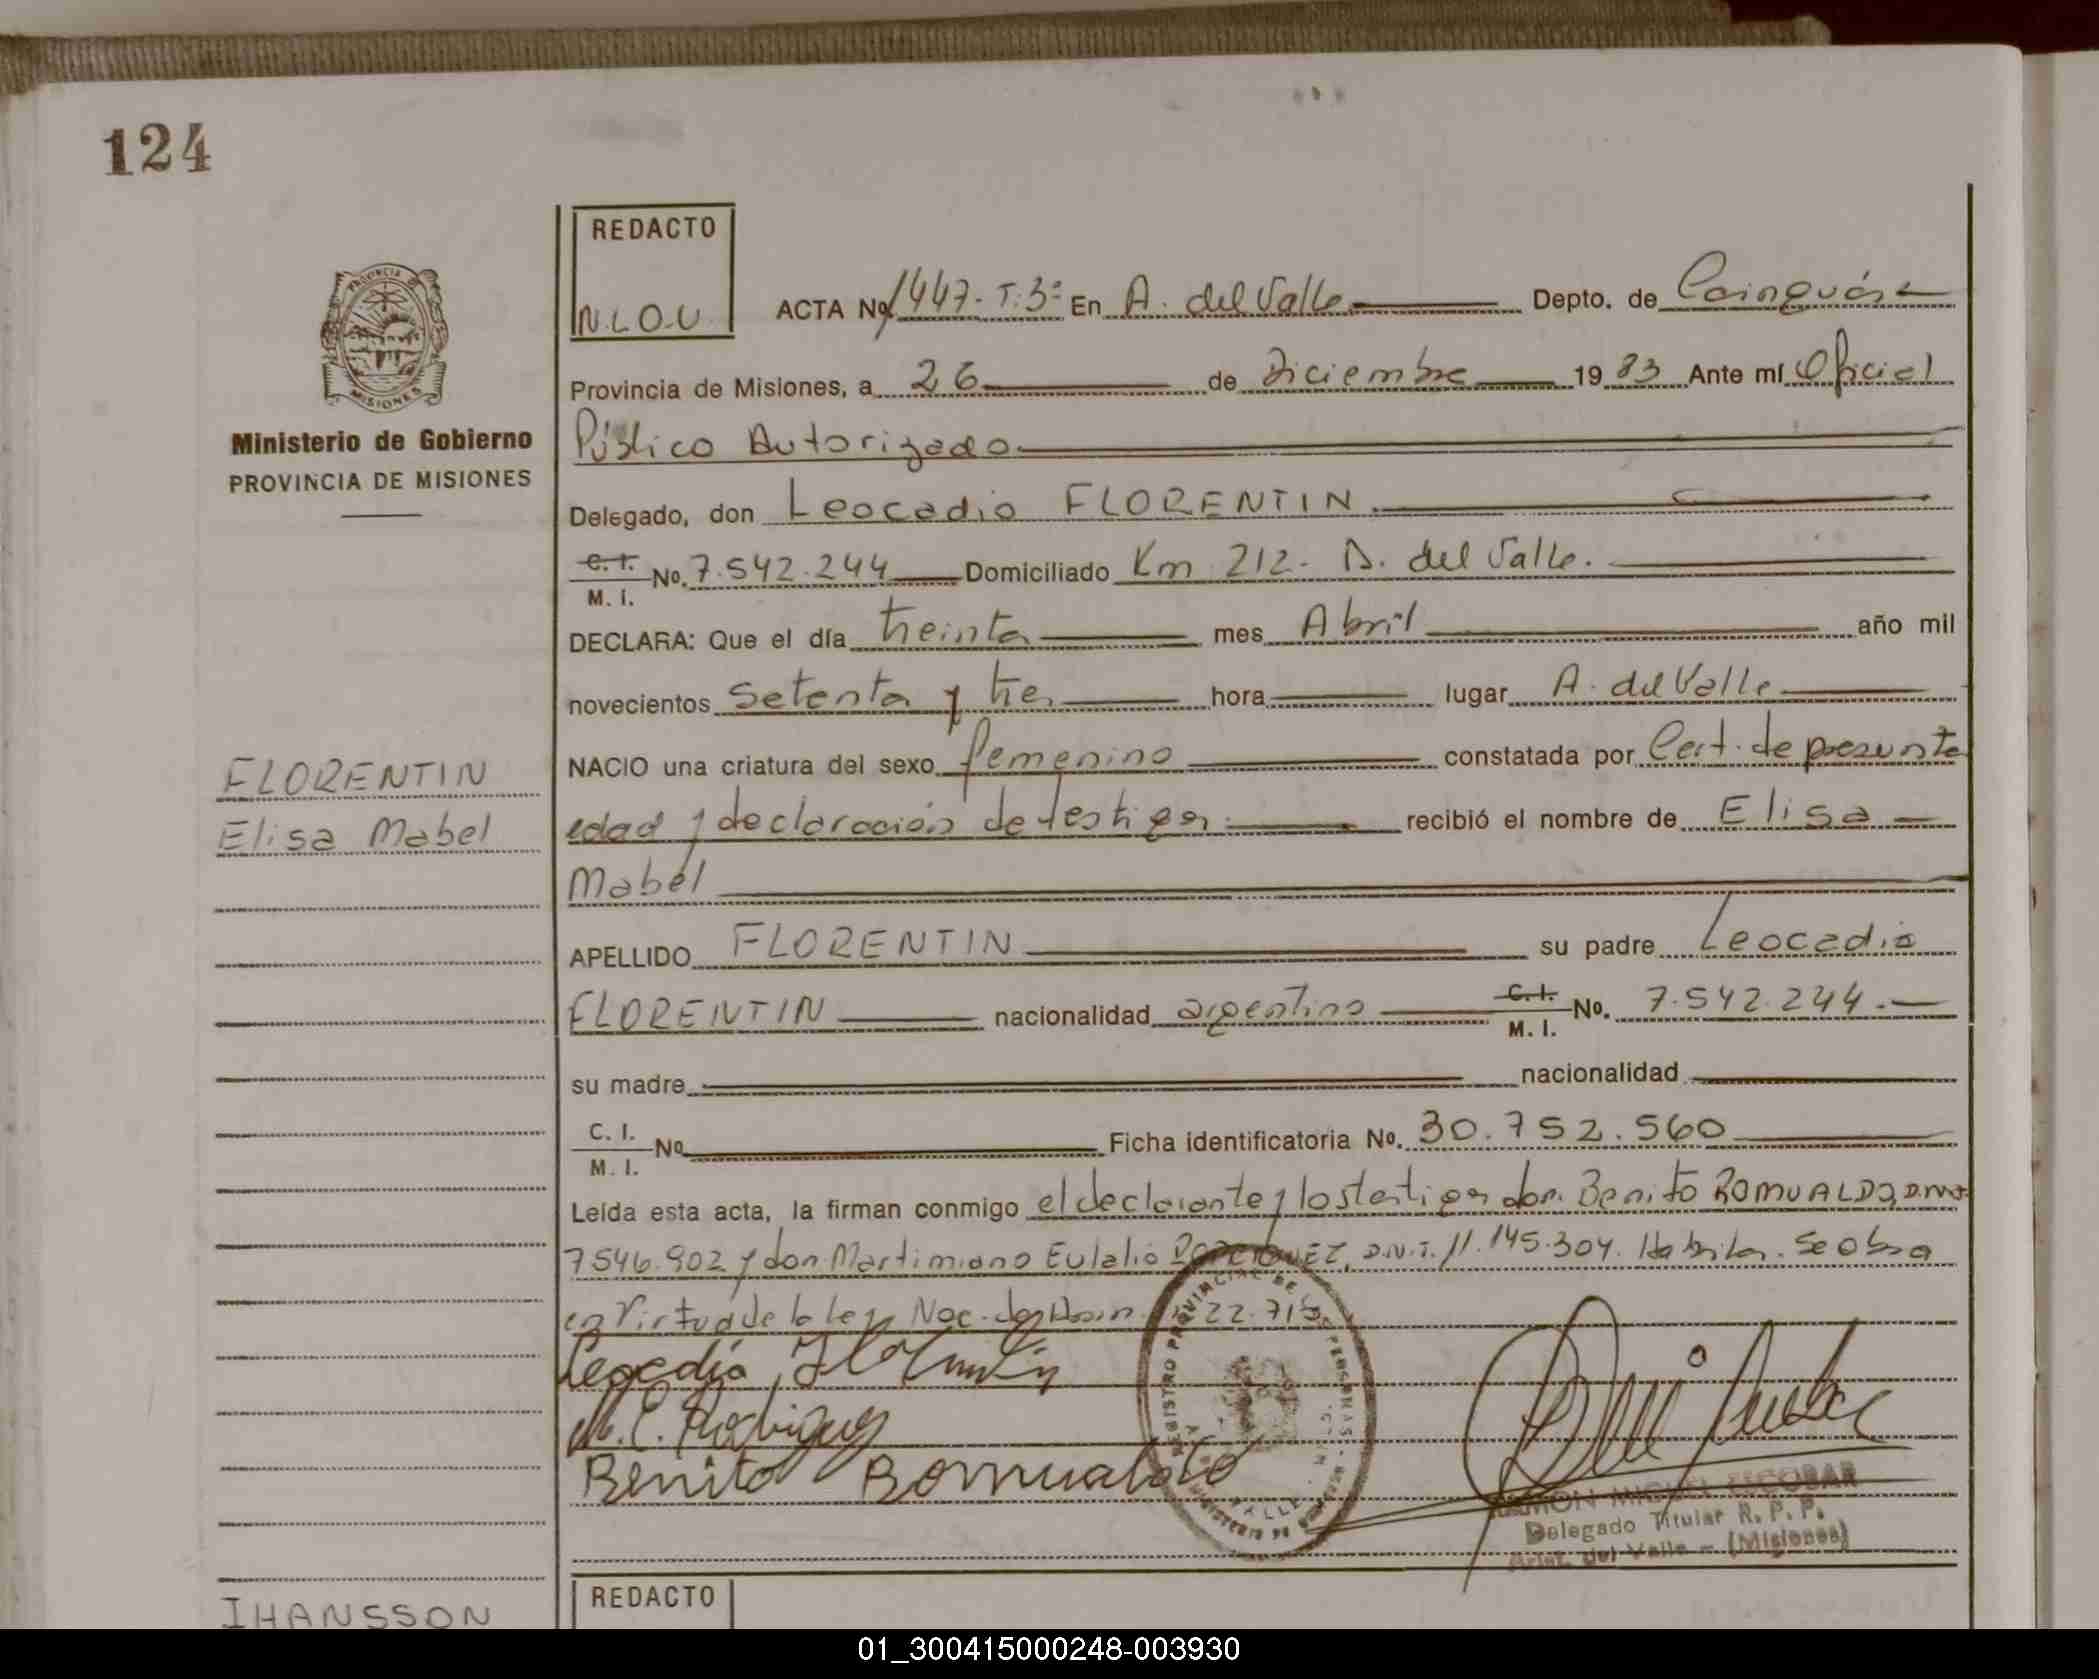 124
REDACTO
N.L.O.U.
ACTA Nº 1447-T:3º En A. del Valle Depto. de Cainguás
PROVINCIA
MISIONES
Provincia de Misiones, a 26 de Diciembre 1983 Ante mí Oficial
Ministerio de Gobierno
Público Autorizado
PROVINCIA DE MISIONES
Delegado, don Leocadio FLORENTIN
C. I. M. I. No. 7.542.244 Domiciliado Km 212- A. del Valle.
DECLARA: Que el día treinta mes Abril año mil
novecientos setenta y tres hora lugar A. del Valle
NACIO una criatura del sexo femenino constatada por Cert. de presunta
FLORENTIN
edad y declaración de testigos recibió el nombre de Elisa
Elisa Mabel
Mabel
APELLIDO FLORENTIN su padre Leocadio
FLORENTIN nacionalidad argentino C. I. M. I. No. 7.542.244.
su madre nacionalidad
C. I. M. I. No Ficha identificatoria No. 30.752.560
Leída esta acta, la firman conmigo el declarante y los testigos don Benito ROMUALDO, D.N.I.
7546.902 y don Martimiano Eulalio D.N.I. 11.145.304. Se obra
en Virtud de la ley Nac. 22.
Leocadio Florentin
M. E. Rodriguez
Benito Romualdo
REGISTRO PROVINCIAL DE LAS PERSONAS
VALLE
RAMON MIGUEL ESCOBAR
Delegado Titular R. P. P.
Arist. del Valle - (Misiones)
REDACTO
IHANSSON
01_300415000248-003930